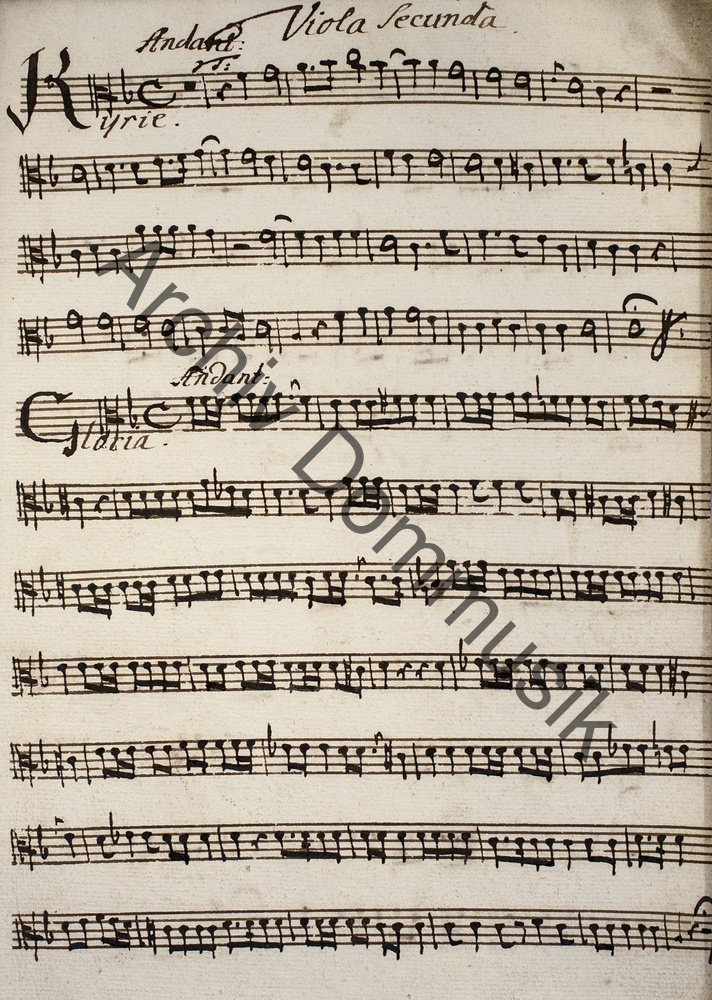 Viola Secunda.
Andant:
Kyrie.
Andant:
Gloria.
Archiv Dommusik